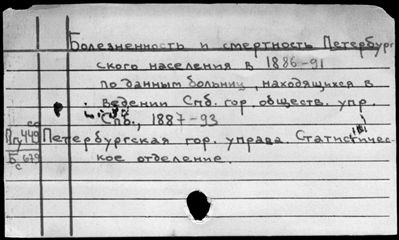 Болезненность и смертность Петербург
ского населения в 1886-91
по данным больниц, находящихся в
ведении Спб. гор. обществ. упр.
Спб., 1887-93
Петербургская гор. управа. Статистичес-
кое отделение.